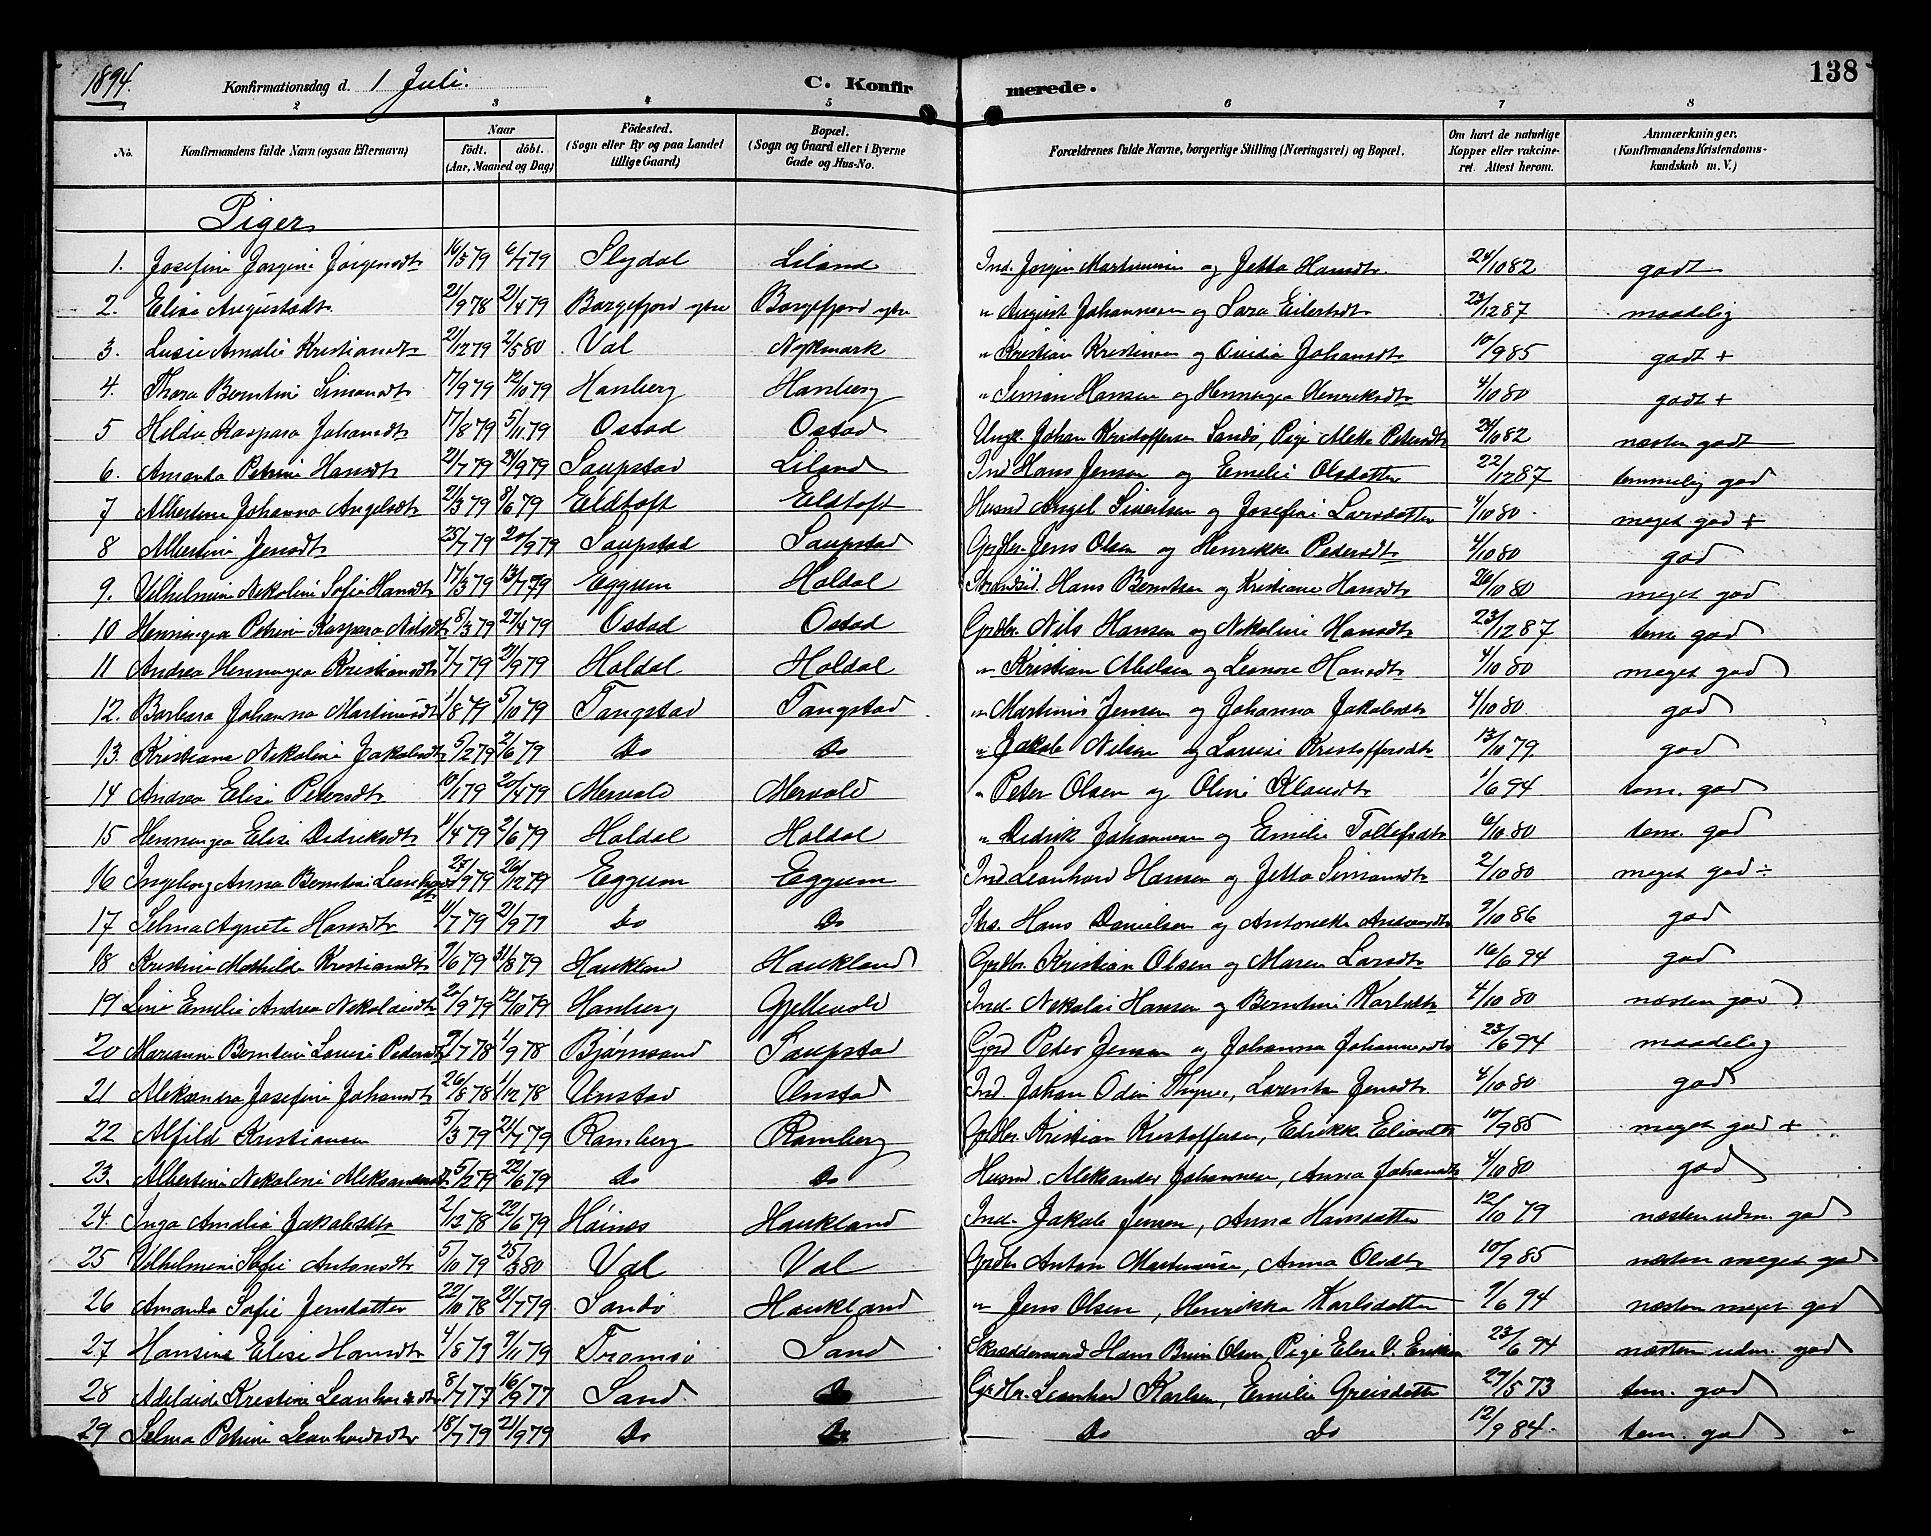 1894. Konfirmationsdag d. 1 Juli. C. Konfirmerede. 138
2 3 4 5 6 7 8
No. Konfirmandens fulde Navn (ogsaa Efternavn) Naar født. døbt. (Aar, Maaned og Dag) Födested. (Sogn eller By og paa Landet tillige Gaard) Bopæl. (Sogn og Gaard eller i Byerne Gade og Hus-No. Forældrenes fulde Navne, borgerlige Stilling (Næringsvei) og Bopæl. Om havt de naturlige Kopper eller vakcineret. Attest herom. Anmærkninger. (Konfirmandens Kristendomskundskab m. V.)
Piger
1. Josefine Jørgine Jørgensdt 16/5 79 6/7 79 Slydal Liland Ind. Jørgen Martinusen og Jetta Hansdt. 24/10 82 godt
2. Elise Augustsdt. 21/9 78 21/4 79 Borgefjord ytre Borgefjord ytre " August Johannesen og Sara Eilertsdt 23/12 87 maadelig
3. Lusie Amalie Kristiansdt 21/12 79 2/5 80 Val Nykmark " Kristian Kristensen og Ovidia Johansdt 10/9 85 godt +
4. Thora Berntine Simonsdt 17/9 79 12/10 79 Hanberg Hanberg " Simon Hansen og Henningea Henriksdt 4/10 80 godt +
5 Hilda Kaspara Johansdt 17/8 79 5/11 79 Ostad Ostad Ungk. Johan Kristoffersen Sandø, Pige Meka Petersdt 24/10 82 næsten godt
6. Amanda Petrine Hansdt 2/7 79 21/9 79 Saupstad Liland Ind Hans Jensen og Emelie Olsdatter 22/12 87 temmelig god
7 Albertine Johanna Angelsdt 2/3 79 8/6 79 Eldtoft Eldtoft Husmd Angel Sivertsen og Josefine Larsdatter 4/10 80. meget god +
8 Albertine Jensdt 25/7 79 20/9 79 Saupstad Saupstad Grdbr. Jens Olsen og Henrikke Pedersdt 4/10 80 god
9. Vilhelmine Nikoline Sofie Hansdt 17/3 79 13/7 79 Eggum Holdal Strandsid. Hans Berntsen og Kristiane Hansdt 26/10 80 meget god
10 Henningea Petrine Kaspara Nilsdt 8/3 79 27/4 79 Ostad Ostad Grdbr. Nils Hansen og Nikoline Hansdt 23/12 87 tem. god
11 Andrea Henningea Kristiansdt 7/7 79 21/9 79 Holdal Holdal " Kristian Nielsen og Leonore Hansdt 4/10 80 meget god
12. Barbara Johanna Martinusdt 1/8 79 5/10 79 Tangstad Tangstad " Martinus Jensen og Johanna Jakobsdt 4/10 80. god
13. Kristiane Nikoline Jakobsdt 5/2 79 2/6 79 Do Do " Jakob Nilsen og Lovise Kristoffersdt 13/10 79 god
14 Andrea Elise Petersdt 10/1 79 20/4 79 Mervold Mervold " Peter Olsen og Oline Klausdt 1/6 94 tem. god
15 Henningea Elise Didriksdt 1/4 79 2/6 79 Holdal Holdal " Didrik Johannesen og Emilie Tollefsdt 6/10 80 tem. god
16 Ingeborg Anna Berntine Leonhardsdt. 25/9 79 26/12 79 Eggum Eggum Ind Leonhard Hansen og Jetta Simonsdt 2/10 80 meget god ÷
17 Selma Agnete Hansdt 4/7 79 2/9 79 Do Do Strs. Hans Danielsen og Antonette 2/10 86 god
18 Kristine Mathilde Kristiansdt 7/6 79 31/8 79 Haukland Haukland Grdbr. Kristian Olsen og Maren Larsdt 16/6 94 god
19 Line Emelie Andrea Nikolaisdt 20/9 79 12/10 79 Hanberg Gjellevold Ind. Nikolai Hansen og Berntine Karlsdt 4/10 80 næsten god
20 Marianne Berntine Louise Pedersdt 9/7 78 1/9 78 Bjørnsand Saupstad Grd Peder Jensen og Johanna Johannesdt 23/6 94 maadelig
21 Aleksandra Josefine Johansdt 26/8 78 1/12 78 Unstad Unstad Ind Johan Odin Thyness, Lorentse Jensdt 4/10 80 god
22 Alfild Kristiansen 5/3 79 21/7 79 Ramberg Ramberg Grdbr. Kristian Kristoffersen, Edrikke Eliasdt 10/9 85 meget god +
23. Albertine Nikoline Aleksandersdt 5/2 79 22/6 79 Do Do Husmd. Aleksander Johannesen, Anna Johansdt 4/10 80 god
24. Inga Amalia Jakobsdt 2/12 78 22/6 79 Høines Haukland Ind. Jakob Jensen, Anna Hansdatter 12/10 79 næsten udm. god
25 Vilhelmine Sofie Antonsdt 5/10 79 25/3 80 Val Val Grdbr Anton Martinusen, Anna Olsdt 10/9 85 næsten meget god
26 Amanda Sofie Jensdatter 22/10 78 21/7 79 Sandø Haukland " Jens Olsen, Henrikka Karlsdatter 7/6 94 næsten meget god
27 Hansine Elise Hansdt 4/5 79 9/11 79 Tromsø Sand Skræddersvend Hans Bruun Olsen, Pige Elen V. Eriksen 23/6 94 næsten udm. god
28 Adelaide Kristine Leonhardsdt 8/7 77 16/9 77 Sand Do Grdbr. Leonhard Karlsen, Emilie Greisdatter 27/5 73 tem. god
29 Selma Petrine Leonhardsdt 18/7 79 21/9 79 Do Do Do Do 12/9 84. tem. god